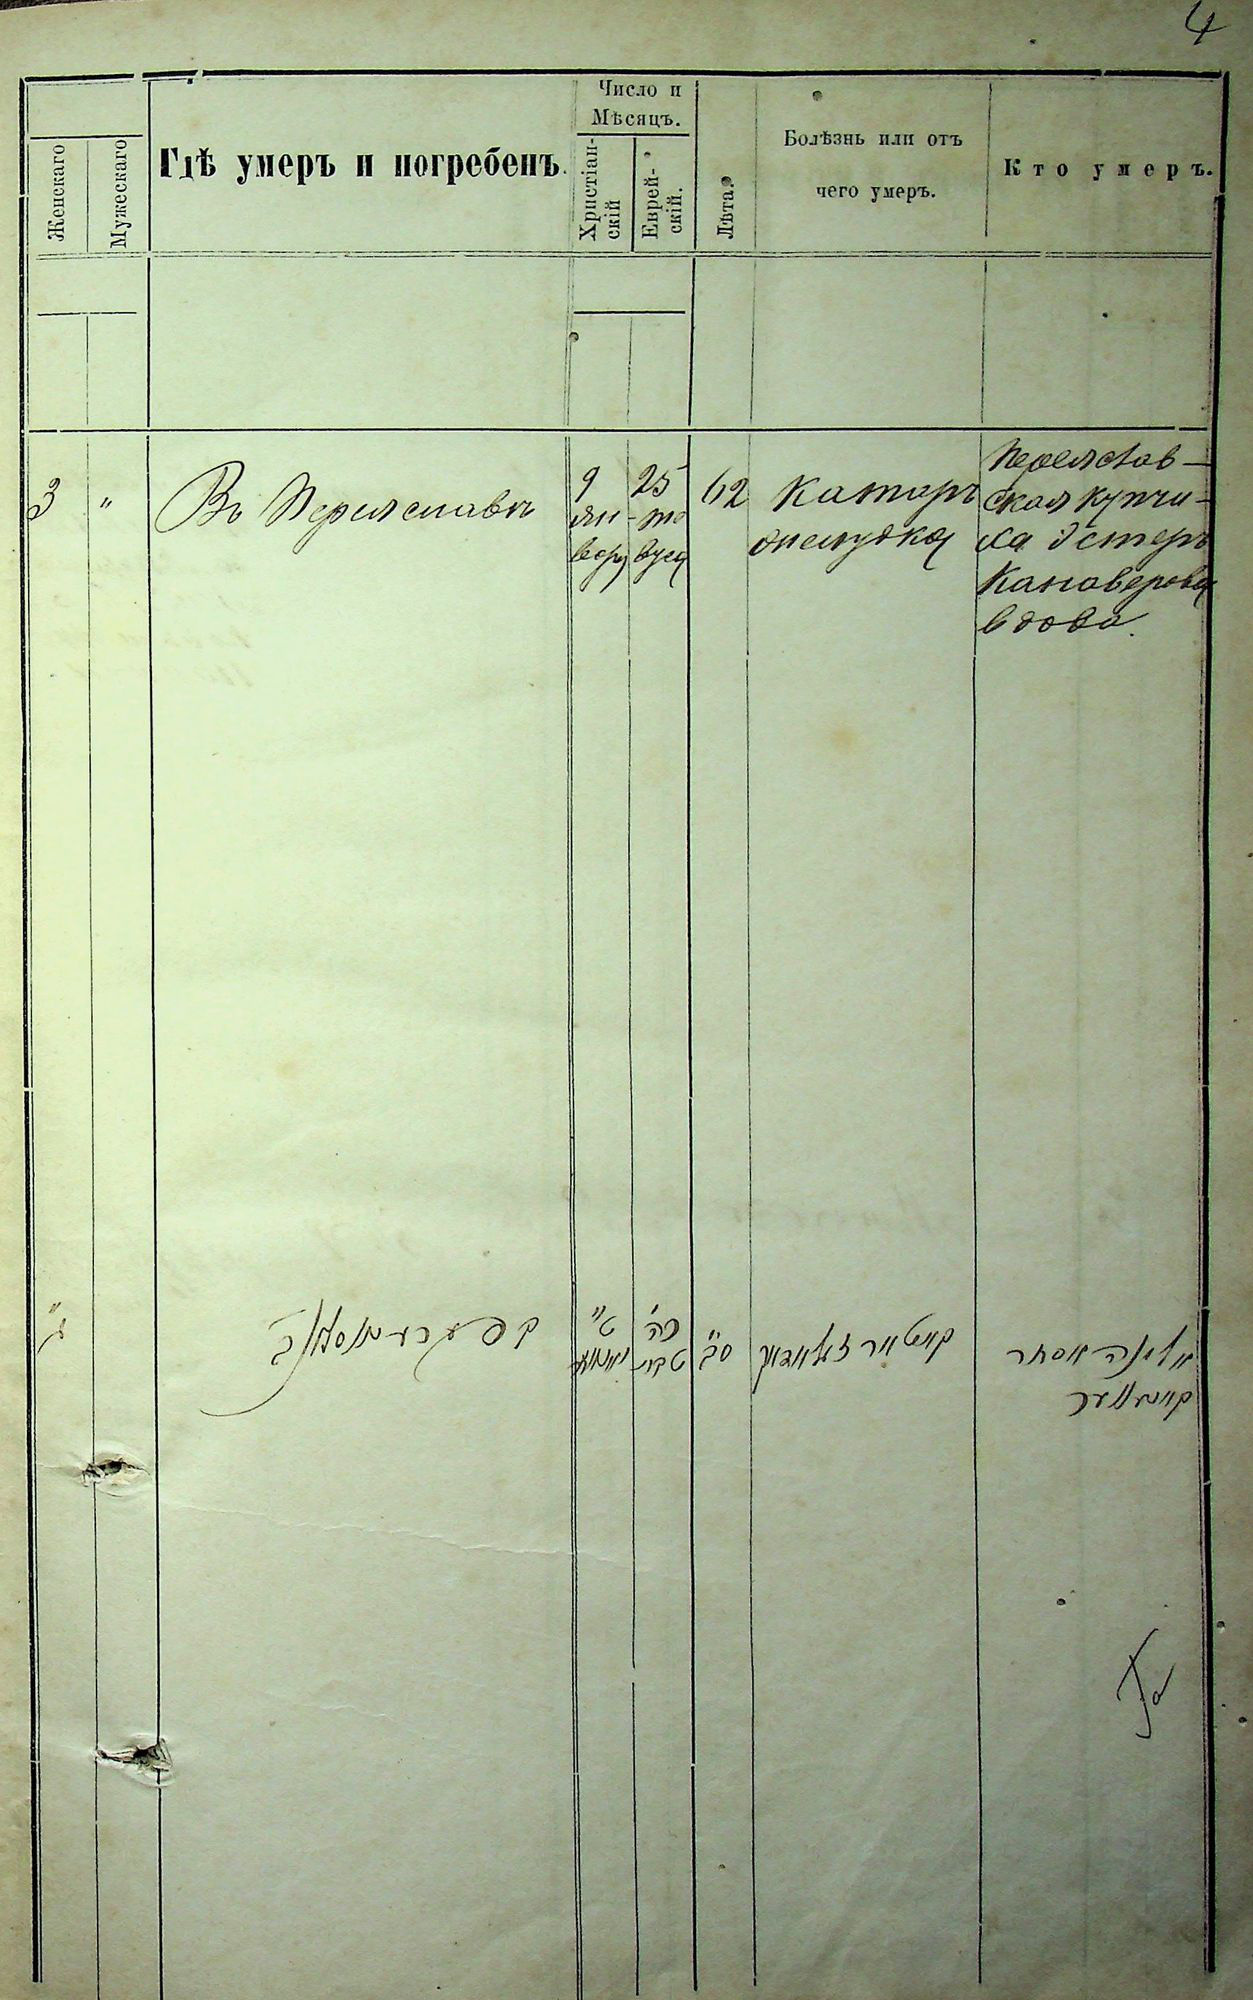 4
Женскаго
Мужескаго
Гдѣ умеръ и погребенъ.
Число и
Мѣсяцъ.
Христіан-
скій
Еврей-
скій.
Лѣта.
Болѣзнь или отъ
чего умеръ.
Кто умеръ.
3
"
Въ Переяславѣ
9
Ян
варя
25
те
вуса
62
Катаръ
желудка
Переяслав-
ская купчи-
ха Эстеръ
Кановерова
вдова.
ט"
כה'
טבת
ס"ב
אסתר